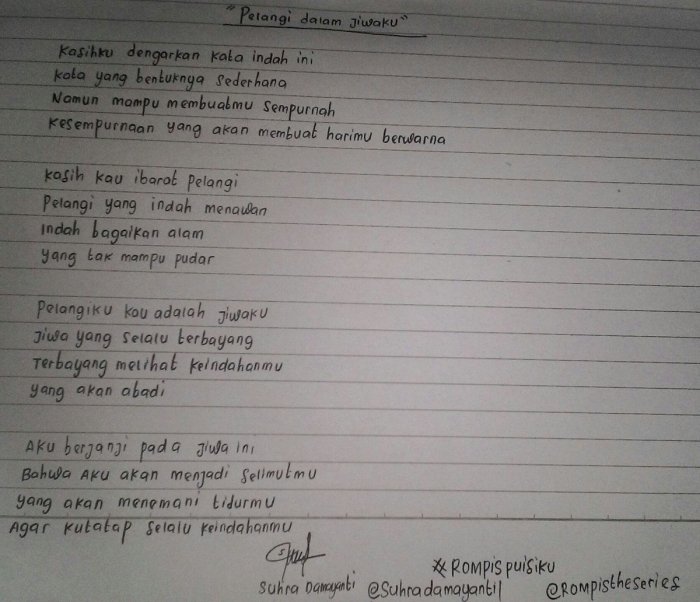 "Pelangi dalam jiwaku"
Kasihku dengarkan kata indah ini
kata yang bentuknya sederhana
Namun mampu membuatmu sempurnah
kesempurnaan yang akan membuat harimu berwarna
kasih kau ibarat pelangi
pelangi yang indah menawan
indah bagaikan alam
yang tak mampu pudar
pelangiku kau adalah jiwaku
jiwa yang selalu terbayang
Terbayang melihat keindahanmu
yang akan abadi
Aku berjanji pada jiwa ini
Bahwa Aku akan menjadi selimutmu
yang akan menemani tidurmu
Agar kutatap selalu keindahanmu
#ROMPISpuisiku
Suhra Damayanti @Suhradamayanti1 @ROMPIStheseries